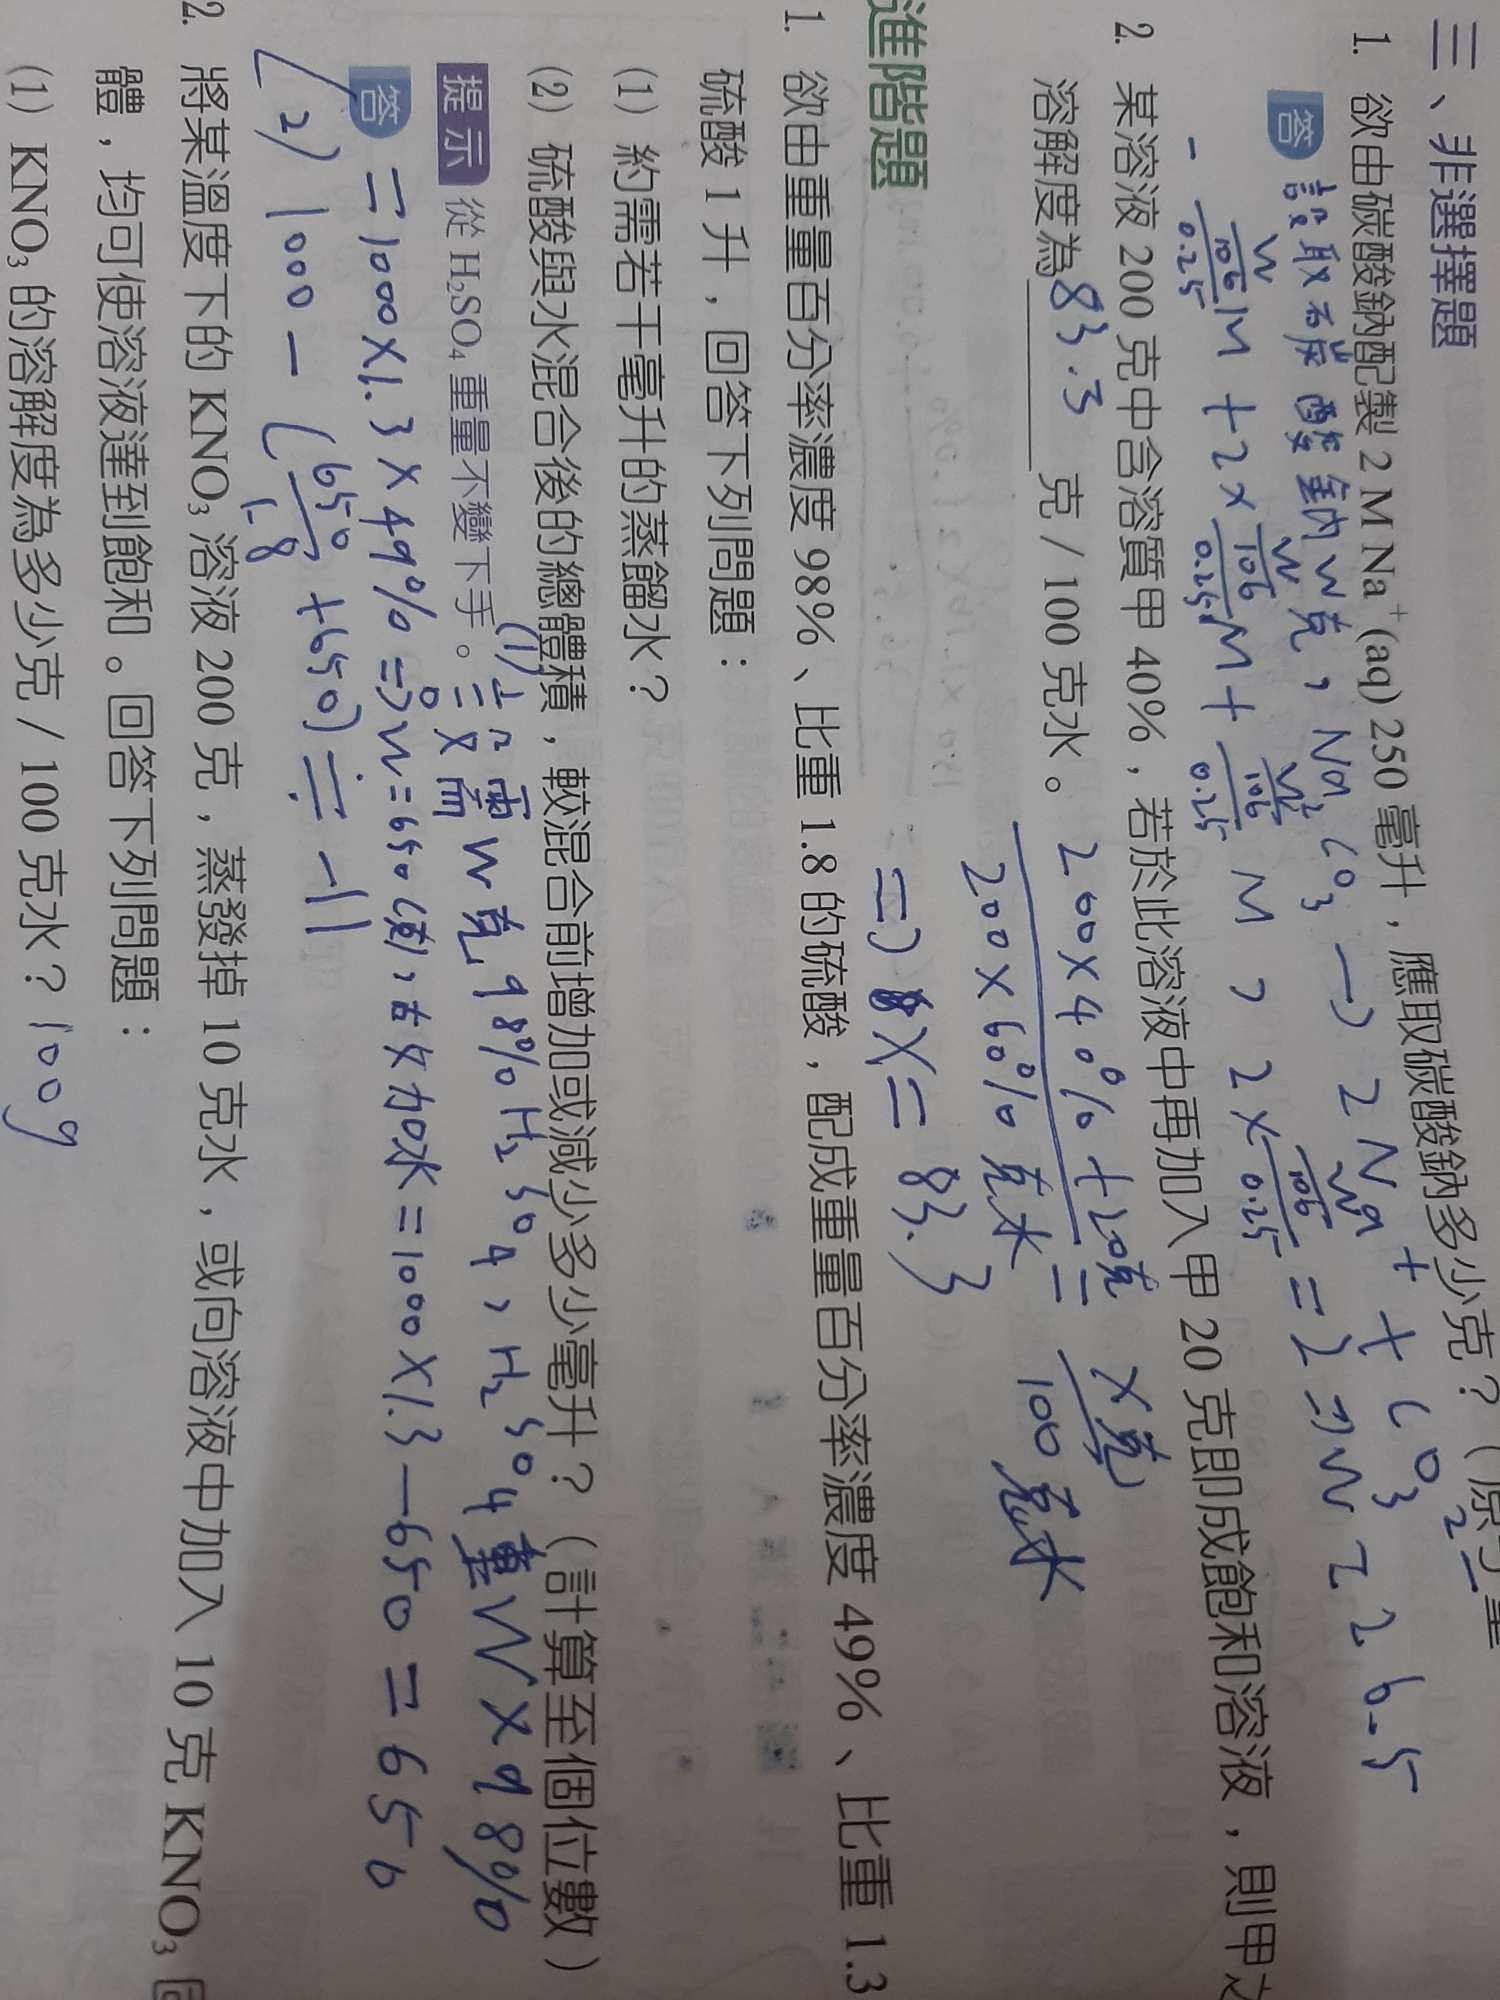 三、非選擇題
1. 欲由碳酸鈉配製 2 M Na⁺(aq) 250 毫升，應取碳酸鈉多少克？（原子量
答 設取碳酸鈉W克，Na₂CO₃ → 2Na⁺ + CO₃²⁻
W/106/0.25 M + 2× W/106/0.25 M + W/106/0.25 M，2× W/106/0.25 = 2 ⇒ W = 26.5
2. 某溶液 200 克中含溶質甲 40%，若於此溶液中再加入甲 20 克即成飽和溶液，則甲之
溶解度為 83.3 克 / 100 克水。
200×40%+20克/200×60%克水 = X克/100克水
⇒ X = 83.3
進階題
1. 欲由重量百分率濃度 98%、比重 1.8 的硫酸，配成重量百分率濃度 49%、比重 1.3
硫酸 1 升，回答下列問題：
(1) 約需若干毫升的蒸餾水？
(2) 硫酸與水混合後的總體積，較混合前增加或減少多少毫升？（計算至個位數）
提示 從 H₂SO₄ 重量不變下手。
(1) 需W克98% H₂SO₄，H₂SO₄重W×98%
答 = 1000×1.3×49% ⇒ W=650(克)，加水=1000×1.3-650=650
(2) 1000-(650/1.8+650)≒-11
2. 將某溫度下的 KNO₃ 溶液 200 克，蒸發掉 10 克水，或向溶液中加入 10 克 KNO₃ 固
體，均可使溶液達到飽和。回答下列問題：
(1) KNO₃ 的溶解度為多少克 / 100 克水？ 100g